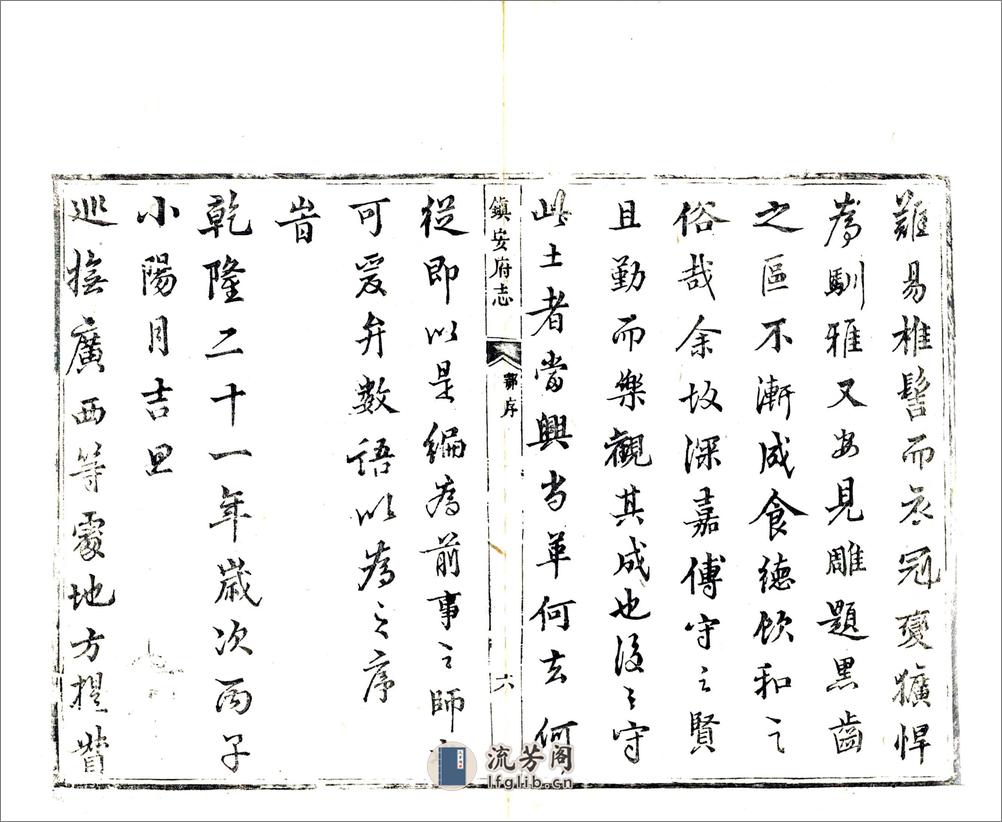 難易椎髻而衣冠變獷悍
為馴雅又安見雕題黑齒
之區不漸成食德飲和之
俗哉余故深嘉傅守之賢
且勤而樂觀其成也後之守
此土者當興當革何去何
鎮安府志 鄂序 六
從即以是編為前事之師
可爰弁數語以為之序
旹
乾隆二十一年歲次丙子
小陽月吉旦
巡撫廣西等處地方提督
流芳阁
lfglib.cn